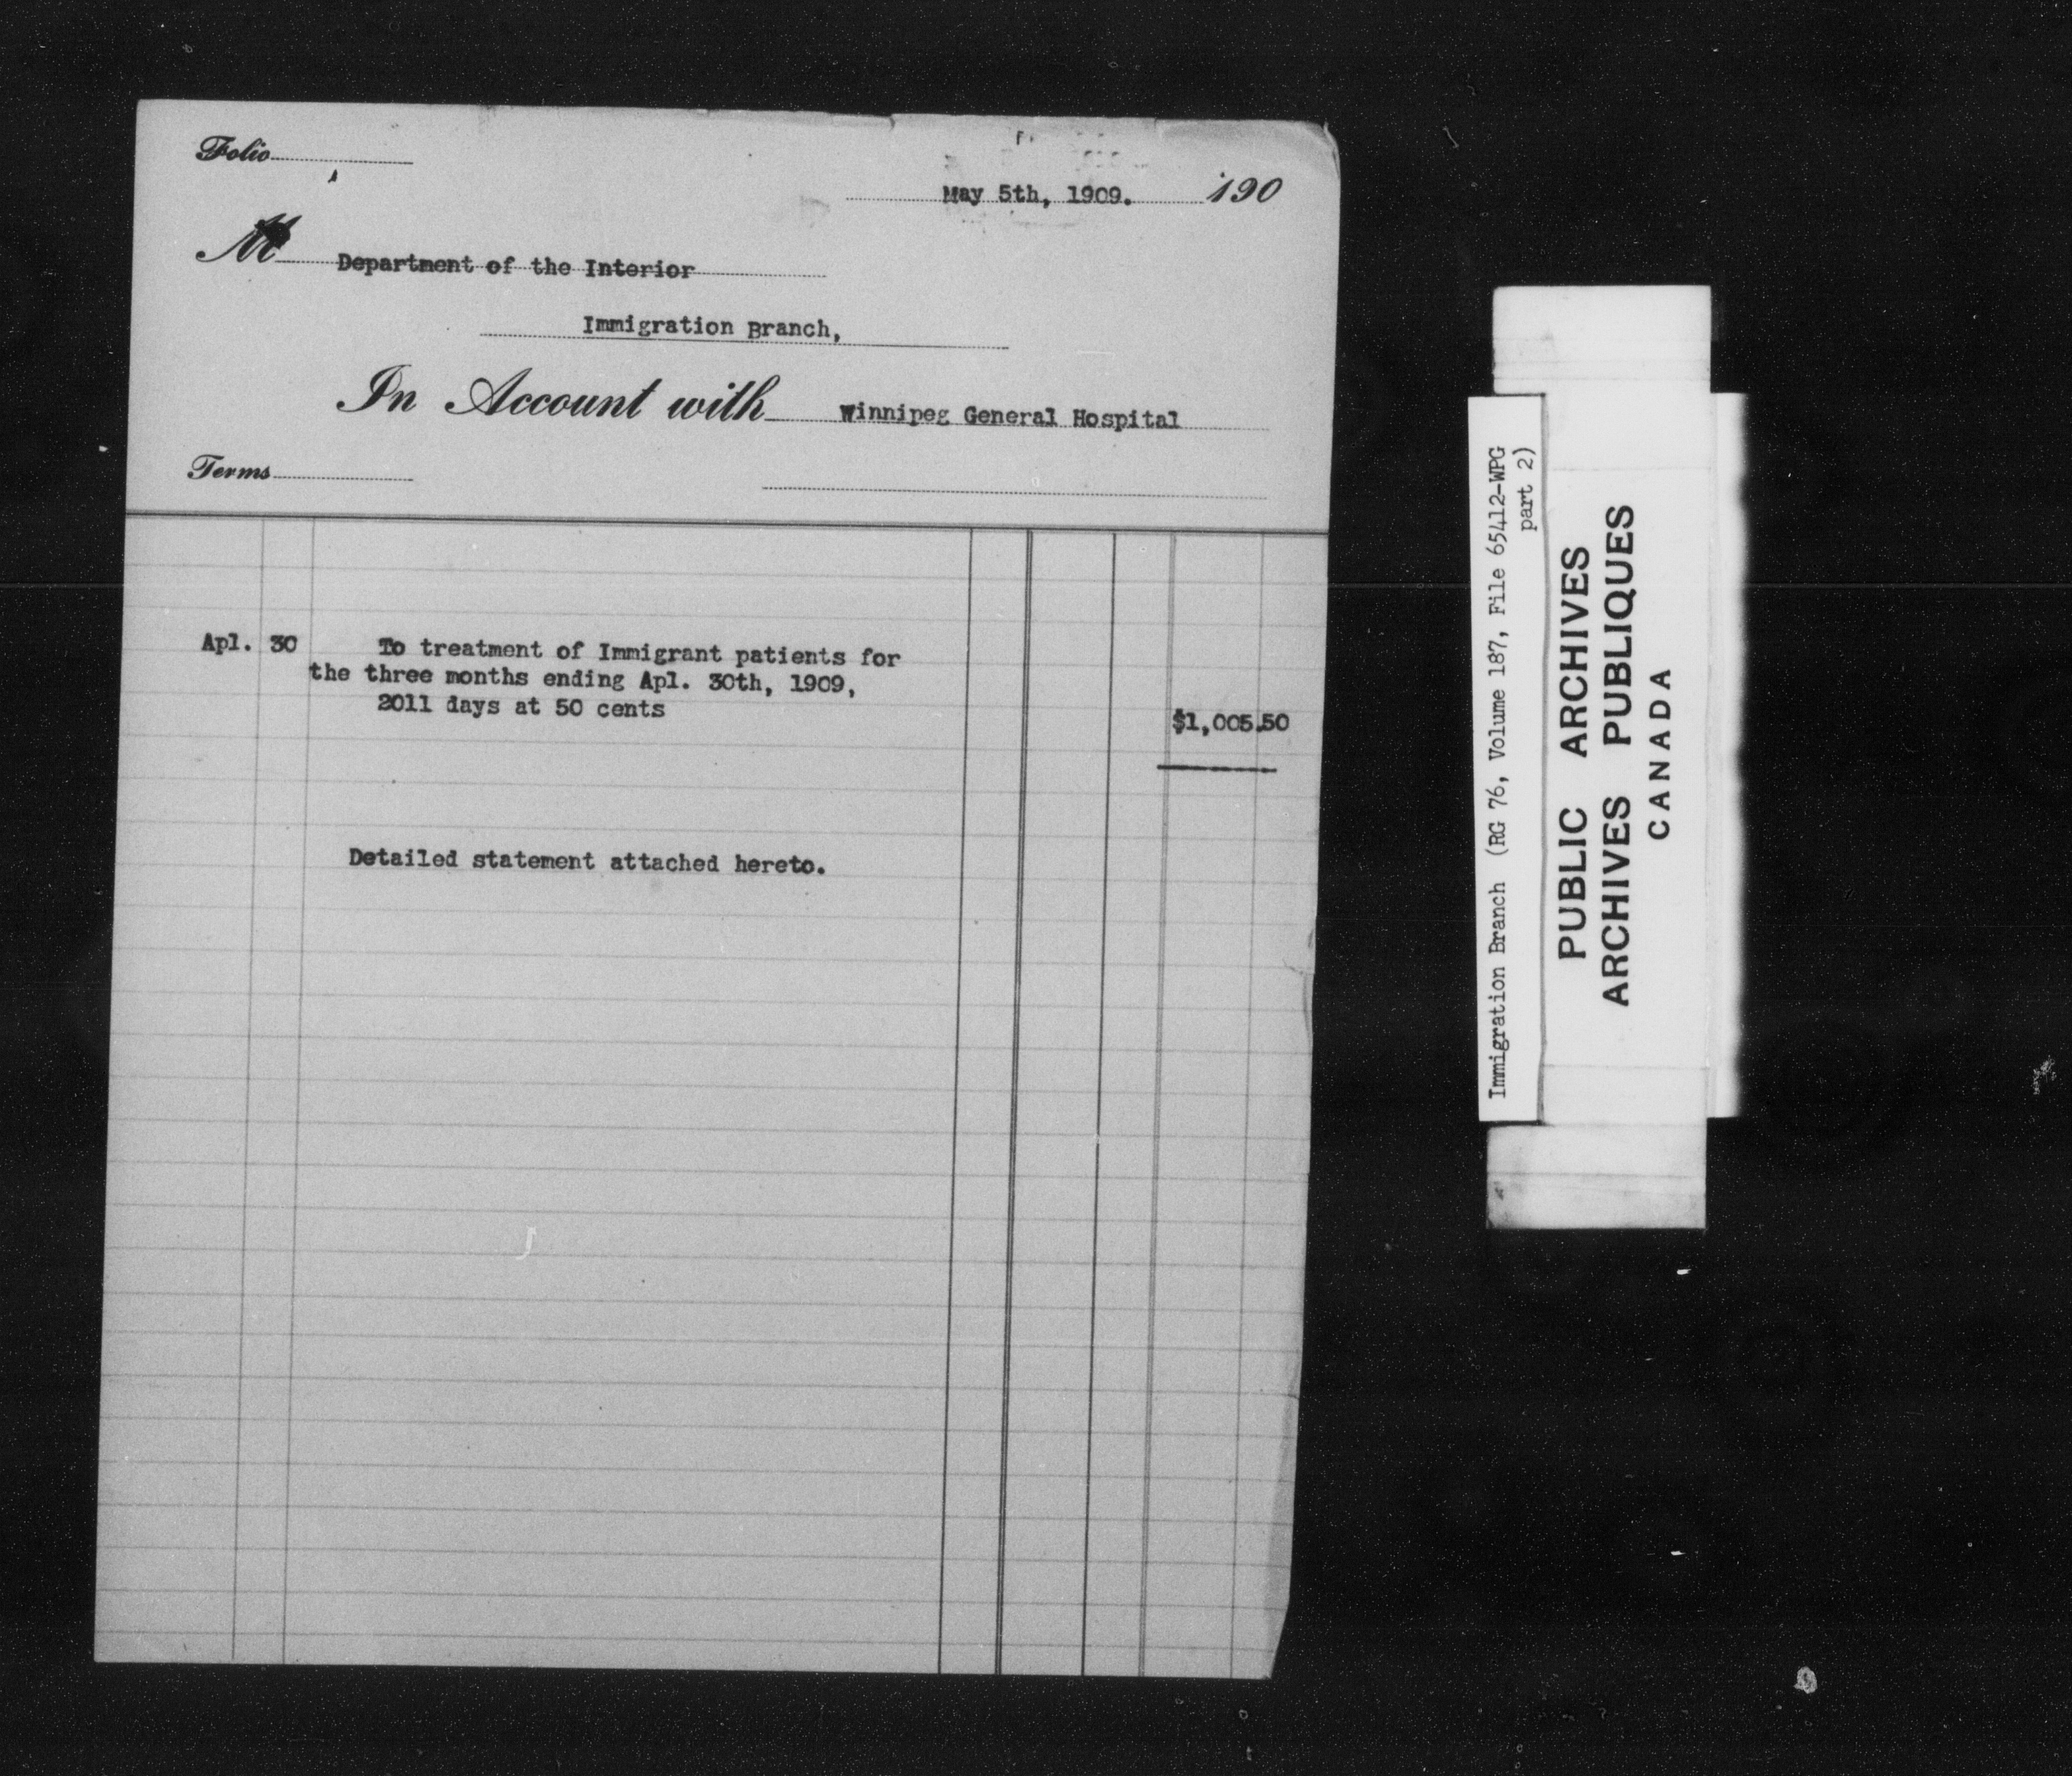 Folio
May 5th, 1909. 190
M Department of the Interior
Immigration Branch,
In Account with Winnipeg General Hospital
Terms
Apl. 30 To treatment of Immigrant patients for
the three months ending Apl. 30th, 1909,
2011 days at 50 cents
$1,005.50
Detailed statement attached hereto.
Immigration Branch (RG 76, Volume 187, File 65412-WPG
part 2)
PUBLIC ARCHIVES
ARCHIVES PUBLIQUES
CANADA